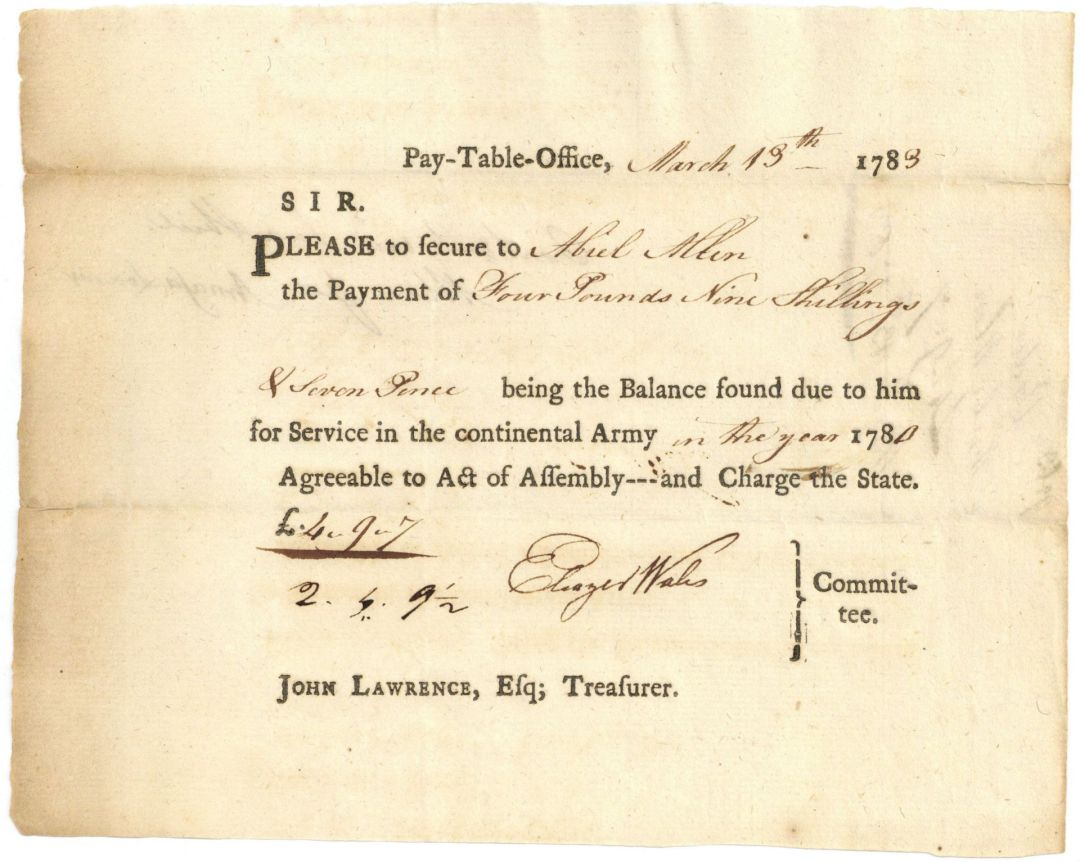 Pay-Table-Office, March 13th 1783
SIR.
PLEASE to ſecure to Abiel Allen
the Payment of Four Pounds Nine Shillings
& Seven Pence being the Balance found due to him
for Service in the continental Army in the year 1780
Agreeable to Act of Aſſembly---and Charge the State.
£4. 9. 7
2. 4. 9½
Eleazer Wales
Commit-
tee.
JOHN LAWRENCE, Eſq; Treaſurer.